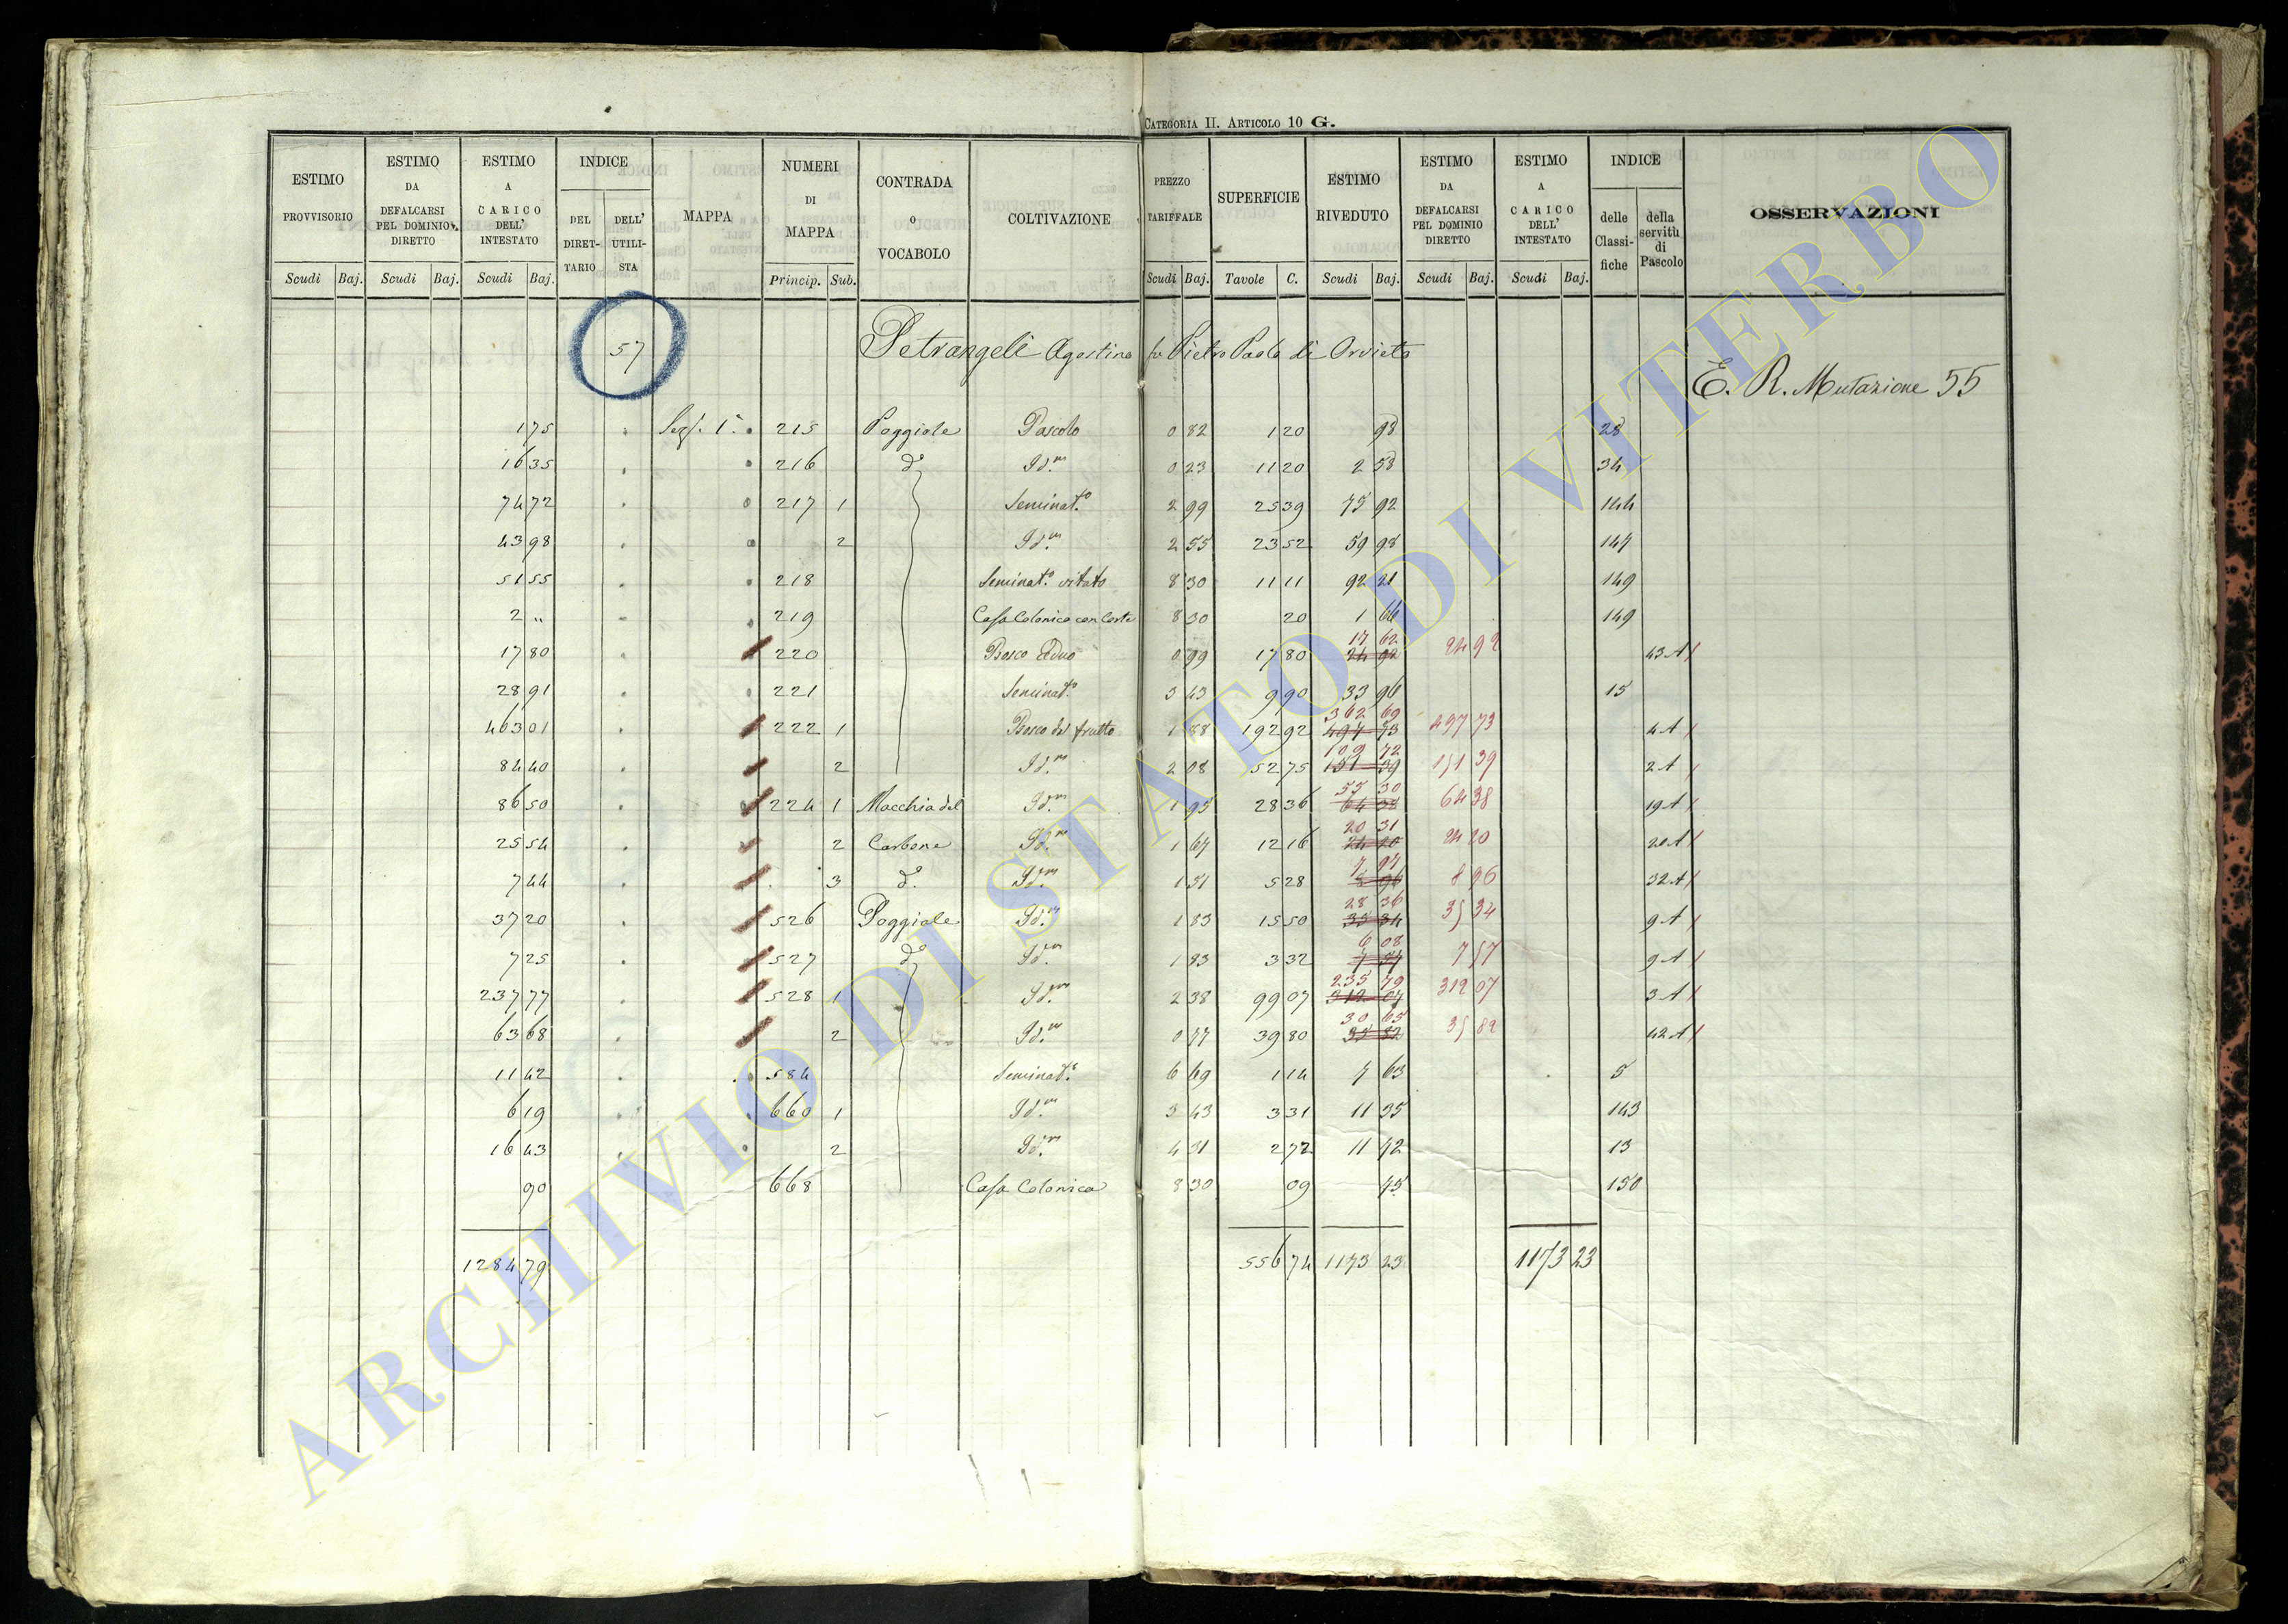 CATEGORIA II. ARTICOLO 10 G.
ESTIMO PROVVISORIO | ESTIMO DA DEFALCARSI PEL DOMINIO DIRETTO | ESTIMO A CARICO DELL' INTESTATO | INDICE DEL DIRETTARIO | DELL' UTILISTA | MAPPA | NUMERI DI MAPPA | CONTRADA o VOCABOLO | COLTIVAZIONE | PREZZO TARIFFALE | SUPERFICIE | ESTIMO RIVEDUTO | ESTIMO DA DEFALCARSI PEL DOMINIO DIRETTO | ESTIMO A CARICO DELL' INTESTATO | INDICE delle Classifiche | della servitù di Pascolo | OSSERVAZIONI
Scudi Baj. Scudi Baj. Scudi Baj. Princip. Sub. Scudi Baj. Tavole C. Scudi Baj. Scudi Baj. Scudi Baj.
57 Petrangeli Agostino fu Pietro Paolo di Orvieto
E. R. Mutazione 55
1 75 Sez. 1ª 215 Poggiole Pascolo 0 82 1 20 98 28
16 35 216 dº Idm 0 23 11 20 2 58 34
74 72 217 1 Seminatº 2 99 25 39 75 92 144
43 98 2 Idm 2 55 23 52 59 98 147
51 55 218 Seminatº vitato 8 30 11 11 92 21 149
2 " 219 Casa Colonica con Corte 8 30 20 1 66 149
17 80 220 Bosco Ceduo 0 99 17 80 17 62 24 92 24 92 43 A
28 91 221 Seminatº 3 43 9 90 33 96 15
463 01 222 1 Bosco da frutto 1 88 192 92 362 69 497 73 497 73 4 A
84 40 2 Idm 2 08 52 75 109 72 151 39 151 39 2 A
86 50 224 1 Macchia del Idm 1 95 28 36 55 30 64 38 64 38 19 A
25 54 2 Carbone Idm 1 67 12 16 20 31 24 20 24 20 20 A
7 44 3 dº Idm 1 51 5 28 7 97 8 96 8 96 32 A
37 20 526 Poggiole Idm 1 83 15 50 28 36 35 34 35 34 9 A
7 25 527 dº Idm 1 83 3 32 6 08 7 57 7 57 9 A
237 77 528 1 Idm 2 38 99 07 235 79 312 07 312 07 3 A
63 68 2 Idm 0 77 39 80 30 65 35 82 35 82 42 A
11 42 584 Seminatº 6 69 1 14 7 63 5
6 19 660 1 Idm 3 43 3 31 11 35 143
16 43 2 Idm 4 31 2 72 11 72 13
90 668 Casa Colonica 8 30 09 75 150
1284 79 556 74 1173 23 1173 23
ARCHIVIO DI STATO DI VITERBO